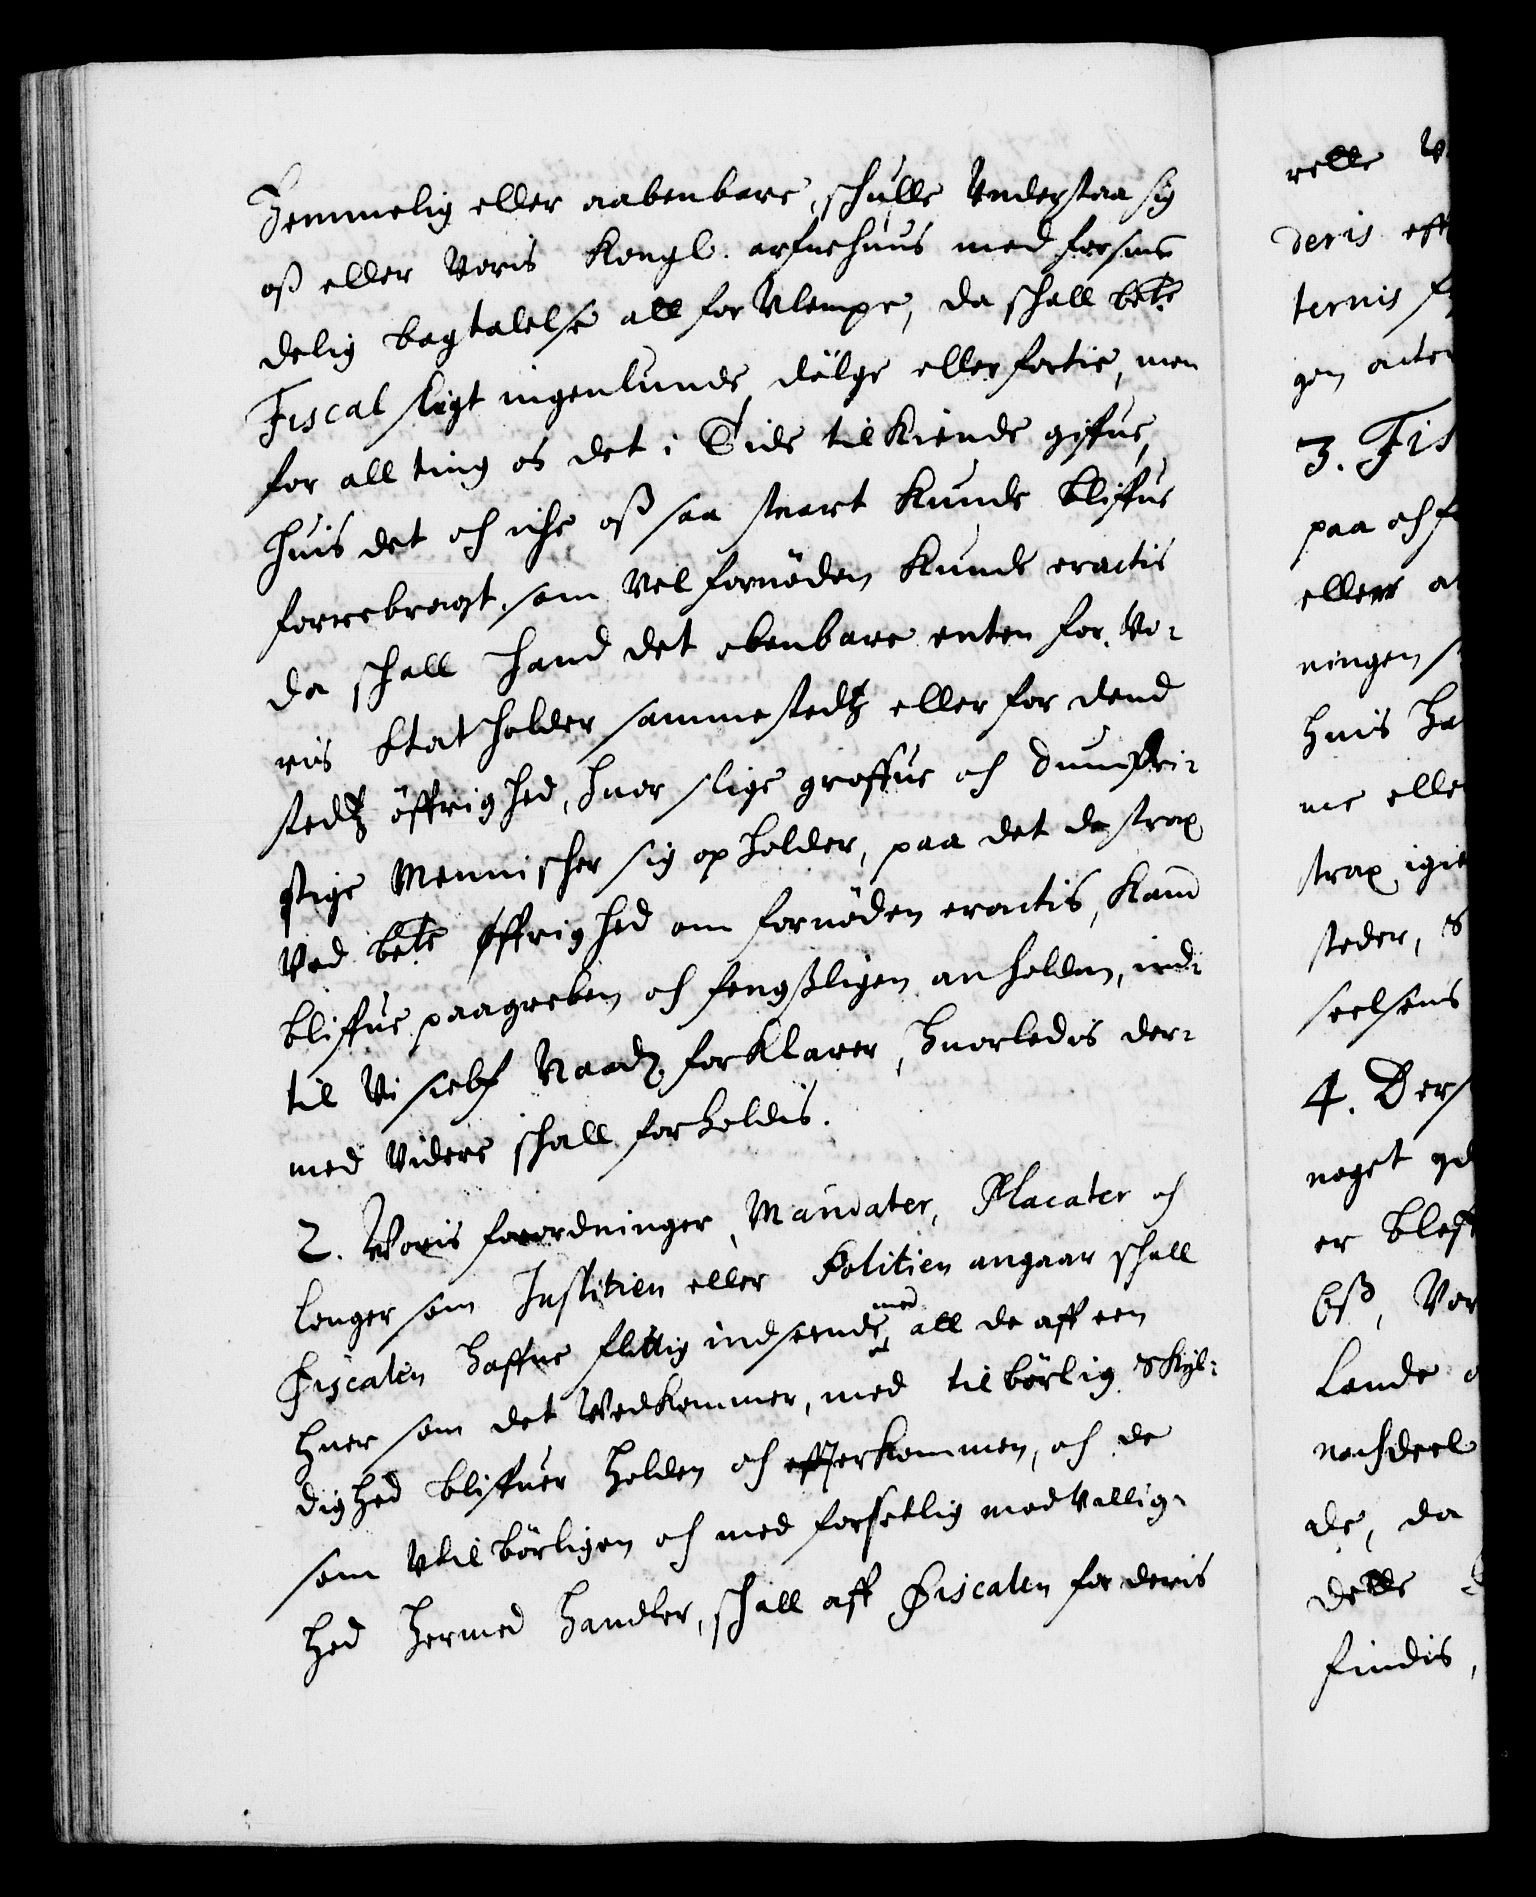 Hemmelig eller aabenbare, schulle Understaa sig
oß eller Voris Kongl. arfuehuus med forsme
delig bagtalelse all for Ulempe, da schall bete
Fiscal sligt ingenlunde, dölge eller fortie, men
for all ting os det i Tide tilkiende giffue,
huis det och iche oß saa snart Kunde bliffue
forrebragt, som Vel fornöden Kunde eractis
da schall hand det obenbare enten for Vo-
ris Statholder sammestedtz eller for dend
stedtz öffrighed, huor slige groffue och dumdri-
stige Mennischer sig opholder, paa det de strax
Ved bete øffrighed om fornöden eractis, Kand
bliffue paagreben och fengßligen anholden, ind-
til Vi sielf Naadz. forklarer, huorledis der-
med Videre schall forholdis.
2. Voris forordninger, Mandater, Placater och
longer som Justitien eller Politien angaar schall
Fiscalen haffue flittig indseende, med all de aff een
huer som det Vedkommer, med tilbörlig skyl-
dighed bliffuer holden och efterkommen, och de
som Utilbörligen och med forsetlig modvillig-
hed hermed handler, schall aff Fiscalen for deris
relle V
deris eff
ternis
gen
3. Fis
paa och f
eller a
ningen
huis ha
me elle
strax igie
steder, s
seelsens
4. Ders
noget
er blef
bß, Vor
Lande
nachdeel
de, da
delle
findis,